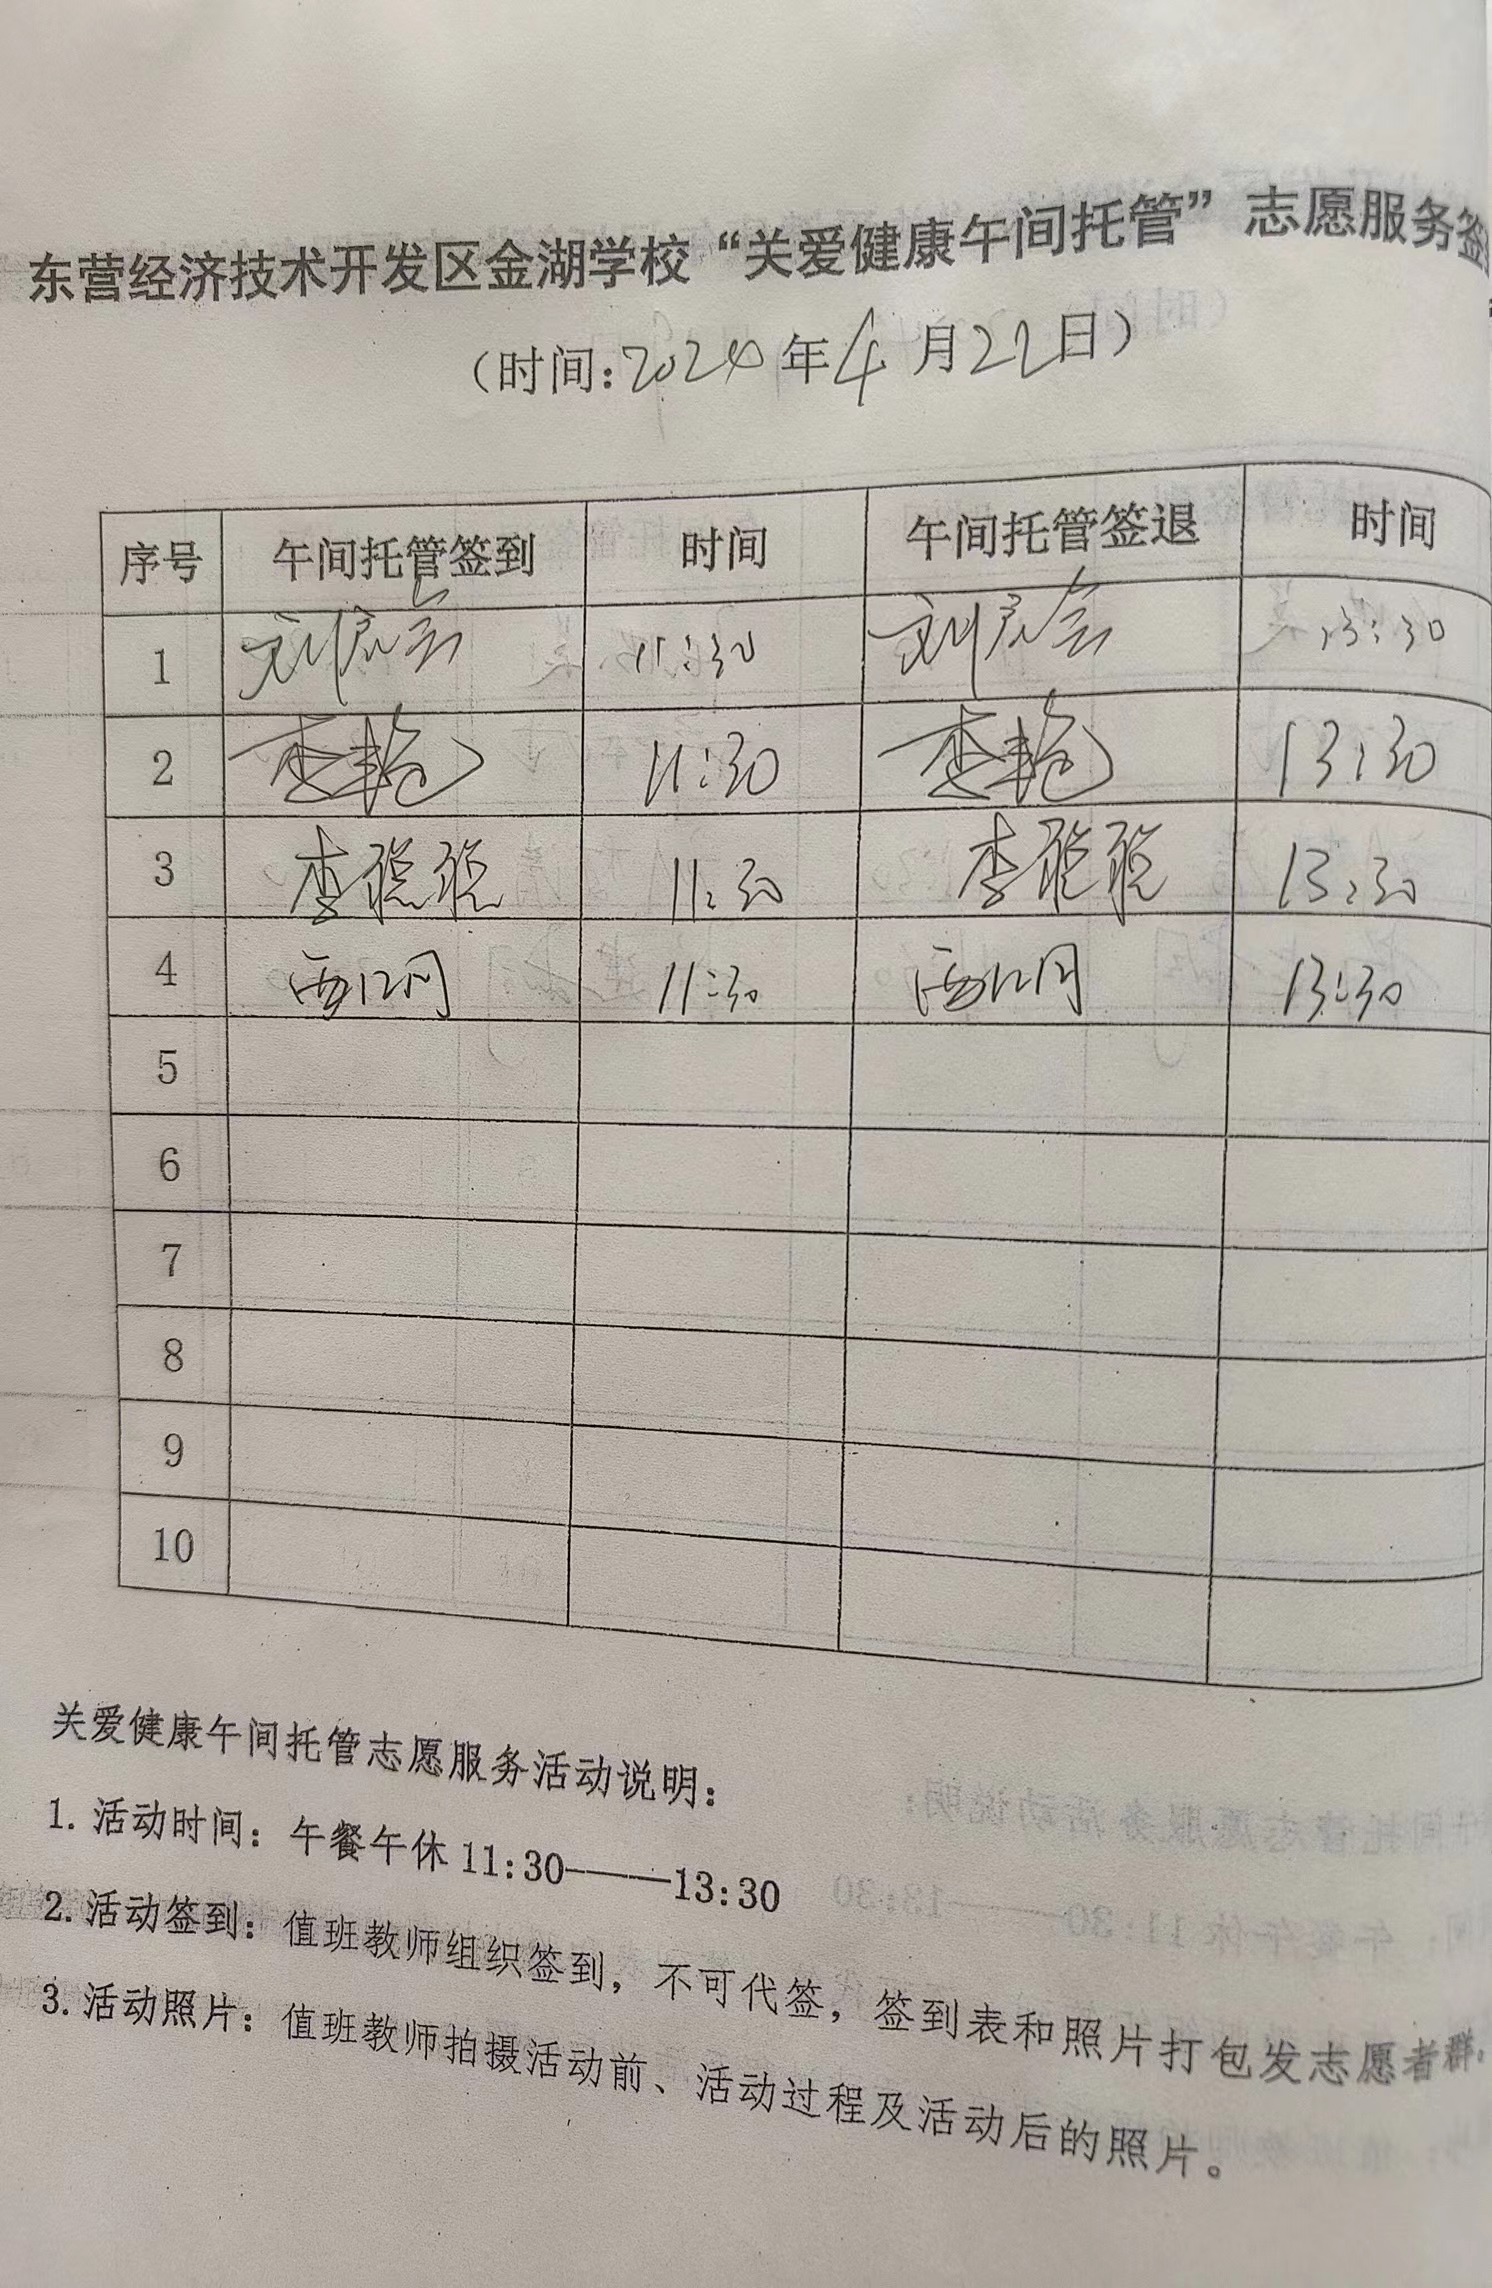 东营经济技术开发区金湖学校“关爱健康午间托管”志愿服务签
（时间：2024年4月22日）
序号 午间托管签到 时间 午间托管签退 时间
1 11:30 13:30
2 李艳 11:30 李艳 13:30
3 李聪聪 11:30 李聪聪 13:30
4 11:30 13:30
5
6
7
8
9
10
关爱健康午间托管志愿服务活动说明：
1. 活动时间：午餐午休 11:30———13:30
2. 活动签到：值班教师组织签到，不可代签，签到表和照片打包发志愿者群.
3. 活动照片：值班教师拍摄活动前、活动过程及活动后的照片。